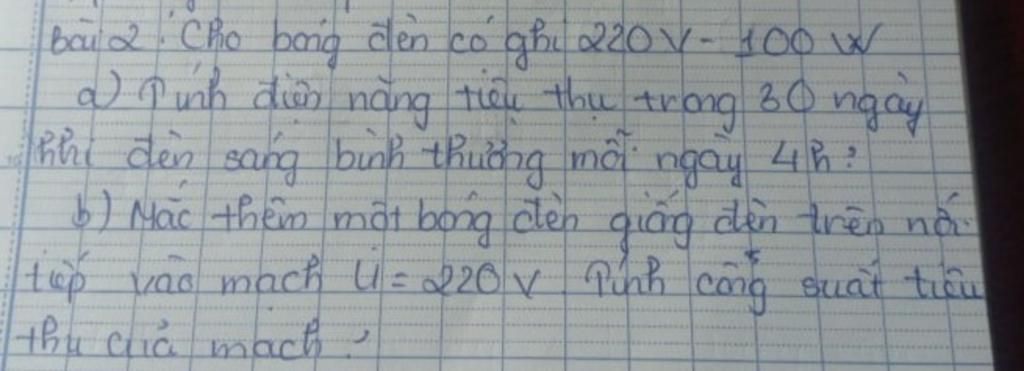 Bài 2: Cho bóng đèn có ghi 220V - 100W
a) Tính điện năng tiêu thụ trong 30 ngày
khi đèn sáng bình thường mỗi ngày 4h?
b) Mắc thêm một bóng đèn giống đèn trên nối
tiếp vào mạch U = 220V Tính công suất tiêu
thụ của mạch?